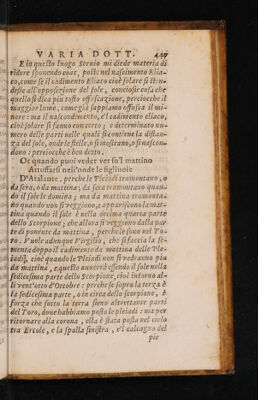 VARIA DOTT.
E in questo luogo Servio mi diede materia di
ridere sponendo eoas, poste nel nascimento Elia-
co, come se il cadimento Eliaco cioè solare si stin-
desse all'opposizione del sole, conciosie cosa che
quello si dica più tosto offoscazione, perciocche il
maggior lume, come già sappiamo offusca il mi-
nore: ma il nascondimento, e'l cadimento eliaco,
cioè solare si fa meno con certo; e determinato nu-
mero delle parti nelle quali si contiene la distan-
za del sole, onde le stelle, o si mostrano, o si nascon-
dono: percioche è ben detto.
Or quando puoi veder ver so'l mattino
Attuffarsi nell'onde le figliuole
D'Atalante, perche le Pleiadi tramontano, o
da sera, o da mattina; da sera tramontano quan-
do il sole le domina; ma da mattina tramonta-
no quando non si veggiono, e appariscono la mat-
tina quando il sole è nella decima quarta parte
dello Scorpione; che allora si veggiono dalla par-
te di ponente da mattina, perche le sono nel To-
ro. Vuole adunque Virgilio, che si faccia la se-
menta doppo il cadimento da mattina delle Ple-
iadi, cioè quando le Pleiadi non si vedranno più
da mattina, e questo averrà essendo il sole nella
sedicesima parte dello Scorpione, cioè intorno al-
li vent'otto d'Ottobre: perche se sopra la terra è
la sedicesima parte, o in circa dello scorpione, è
forza che sotto la terra sieno altrettante parti
del Toro, done habbiamo posto le pleiadi: ma per
ritornare alla corona, ella è stata posta nel cielo
tra Ercole, e la spalla sinistra, e'l calcagno del
pie